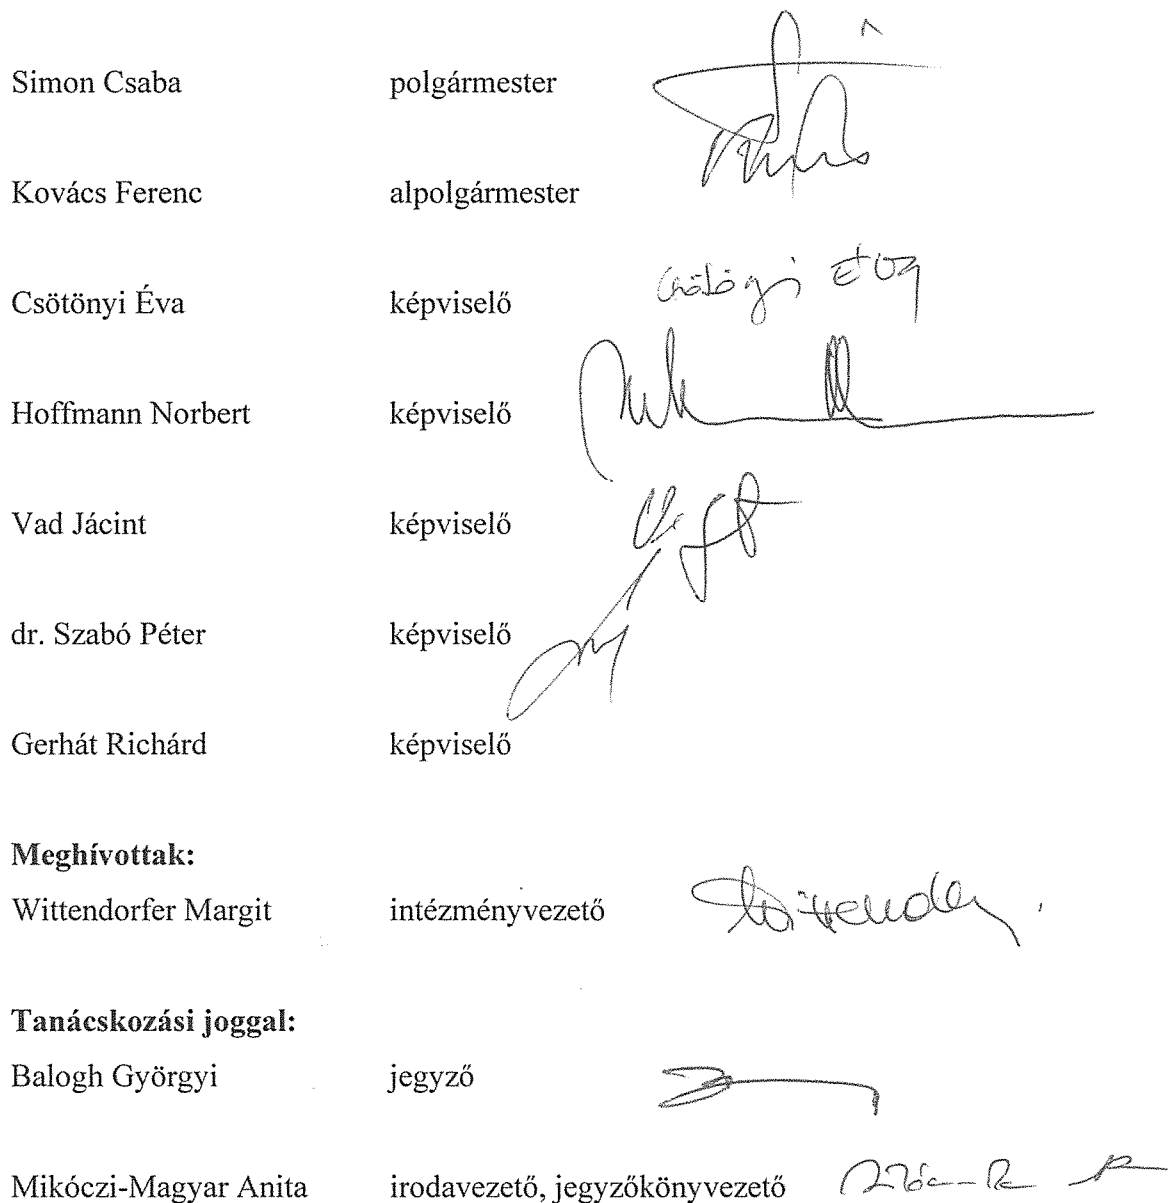 Simon Csaba polgármester
Kovács Ferenc alpolgármester
Csötönyi Éva képviselő
Hoffmann Norbert képviselő
Vad Jácint képviselő
dr. Szabó Péter képviselő
Gerhát Richárd képviselő
Meghívottak:
Wittendorfer Margit intézményvezető
Tanácskozási joggal:
Balogh Györgyi jegyző
Mikóczi-Magyar Anita irodavezető, jegyzőkönyvezető